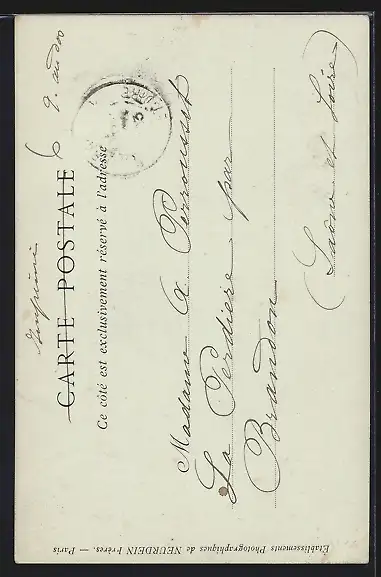 Imprimé
CARTE POSTALE
Ce côté est exclusivement réservé à l'adresse
Madame A Perrousset
La Perdiere par
Brandon
(Saone et Loire)
Etablissements Photographiques de NEURDEIN Frères. — Paris